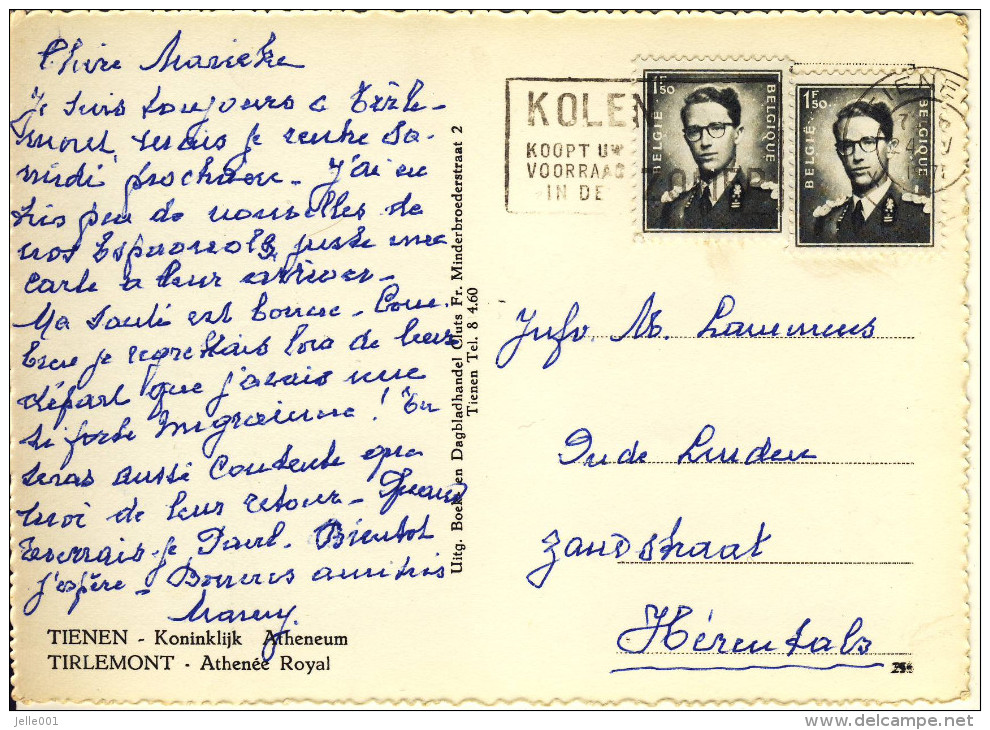 Chère Marieke
Je suis toujours à Tirle-
mont mais je rentre sa-
medi prochain. J'ai eu
très peu de nouvelles de
nos Espagnols, juste une
carte à leur arrivée.
Ma santé est bonne - Com-
bien je regrettais lors de leur
départ que j'avais une
si forte migraine! Tu
seras aussi contente que
moi de leur retour - Quand
reverrais-je Paul. Bientôt
j'espère - Bonnes amitiés
TIENEN - Koninklijk Atheneum
TIRLEMONT - Athenée Royal
Uitg. Boek- en Dagbladhandel Cluts Fr. Minderbroederstraat 2
Tienen Tel. 8 4.60
KOLEN
KOOPT UW
VOORRAAD
IN DE
ZOMER
1F50
BELGIE BELGIQUE
1F50
BELGIE BELGIQUE
Jufv. M. Lammens
Oude Linden
Zandstraat
Hérentals
jelle001
www.delcampe.net